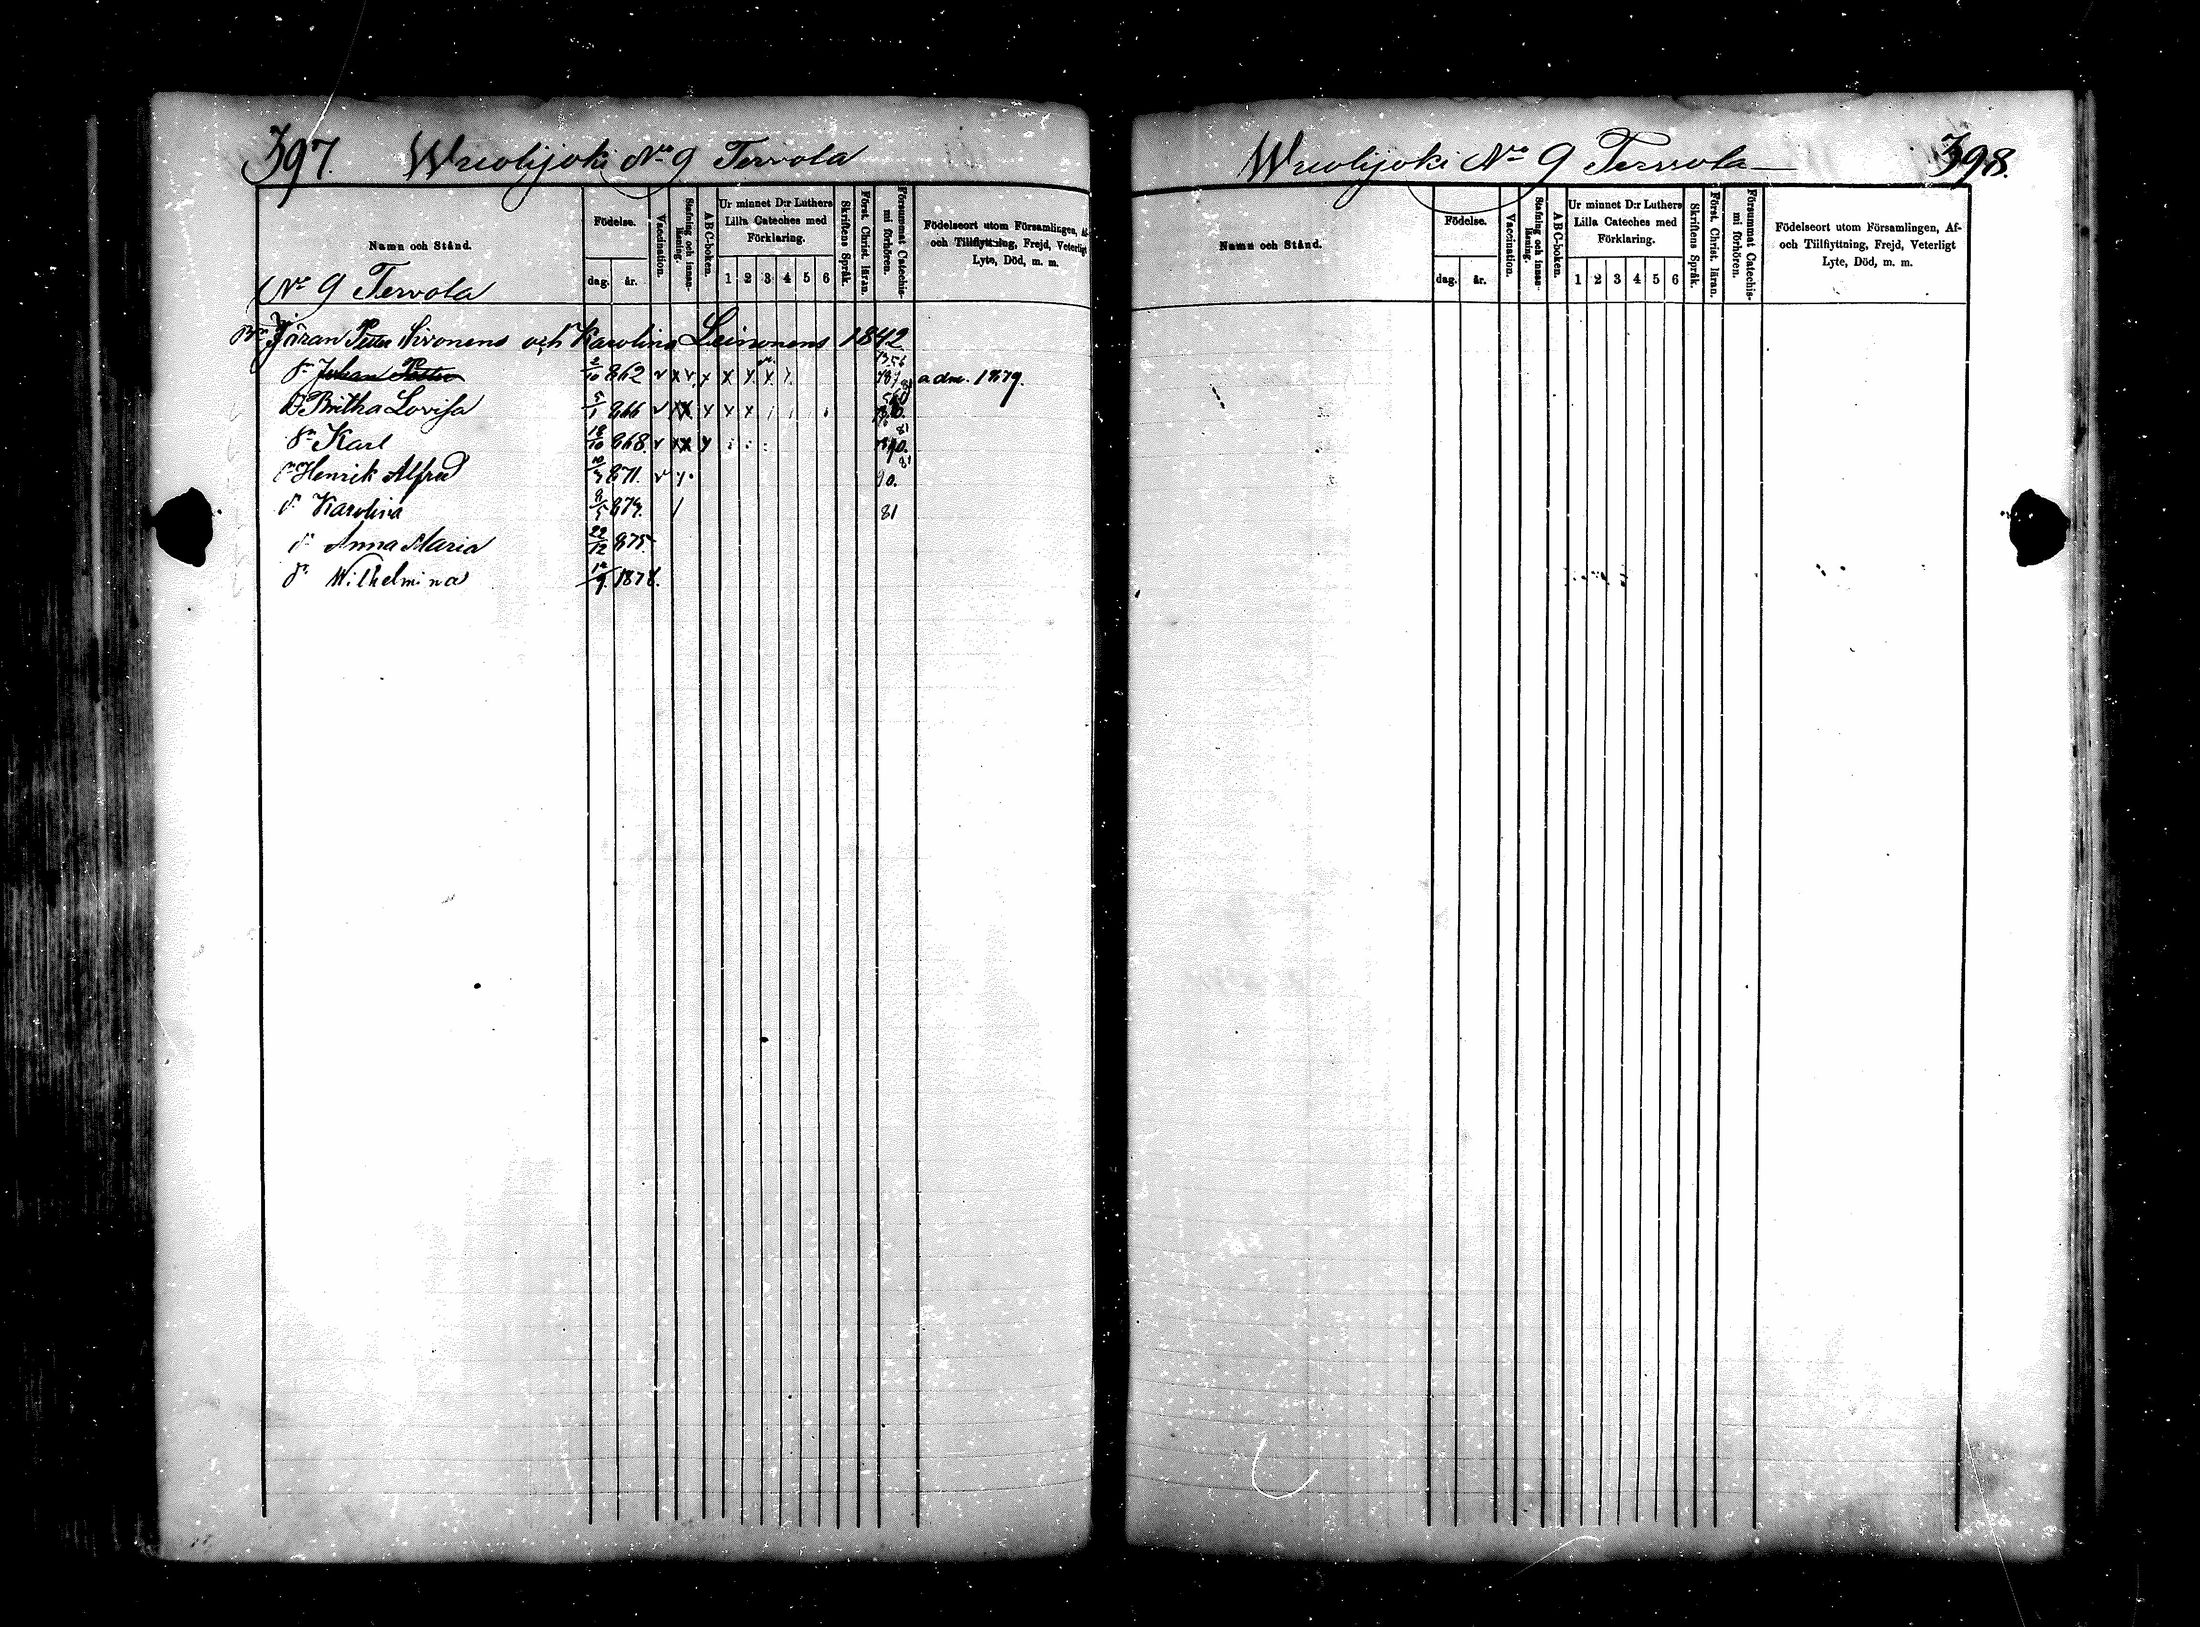 397. Wuolijoki No 9 Tervola
Namn och Stånd.
Födelse.
dag. år.
Vaccination.
Stafning och innan-läsning.
ABC-boken.
Ur minnet D:r Luthers Lilla Cateches med Förklaring.
1 2 3 4 5 6
Skriftens Språk.
Först. Christ. läran.
Försummat Catechis-mi förhören.
Födelseort utom Församlingen, Af- och Tillflyttning, Frejd, Veterligt Lyte, Död, m. m.
No 9 Tervola
Göran Petter Sivonens och Karolina Leinonens 1842
Johan Petter 2/10 862 adm. 1879.
Britha Lovisa 5/1 866
Karl 18/10 868. 81
Henrik Alfred 871. 90. 81
Karolina 873. 81
Anna Maria 22/12 875
Wilhelmina 1878.
Wuolijoki No 9 Tervola 398.
Namn och Stånd.
Födelse.
dag. år.
Vaccination.
Stafning och innan-läsning.
ABC-boken.
Ur minnet D:r Luthers Lilla Cateches med Förklaring.
1 2 3 4 5 6
Skriftens Språk.
Först. Christ. läran.
Försummat Catechis-mi förhören.
Födelseort utom Församlingen, Af- och Tillflyttning, Frejd, Veterligt Lyte, Död, m. m.